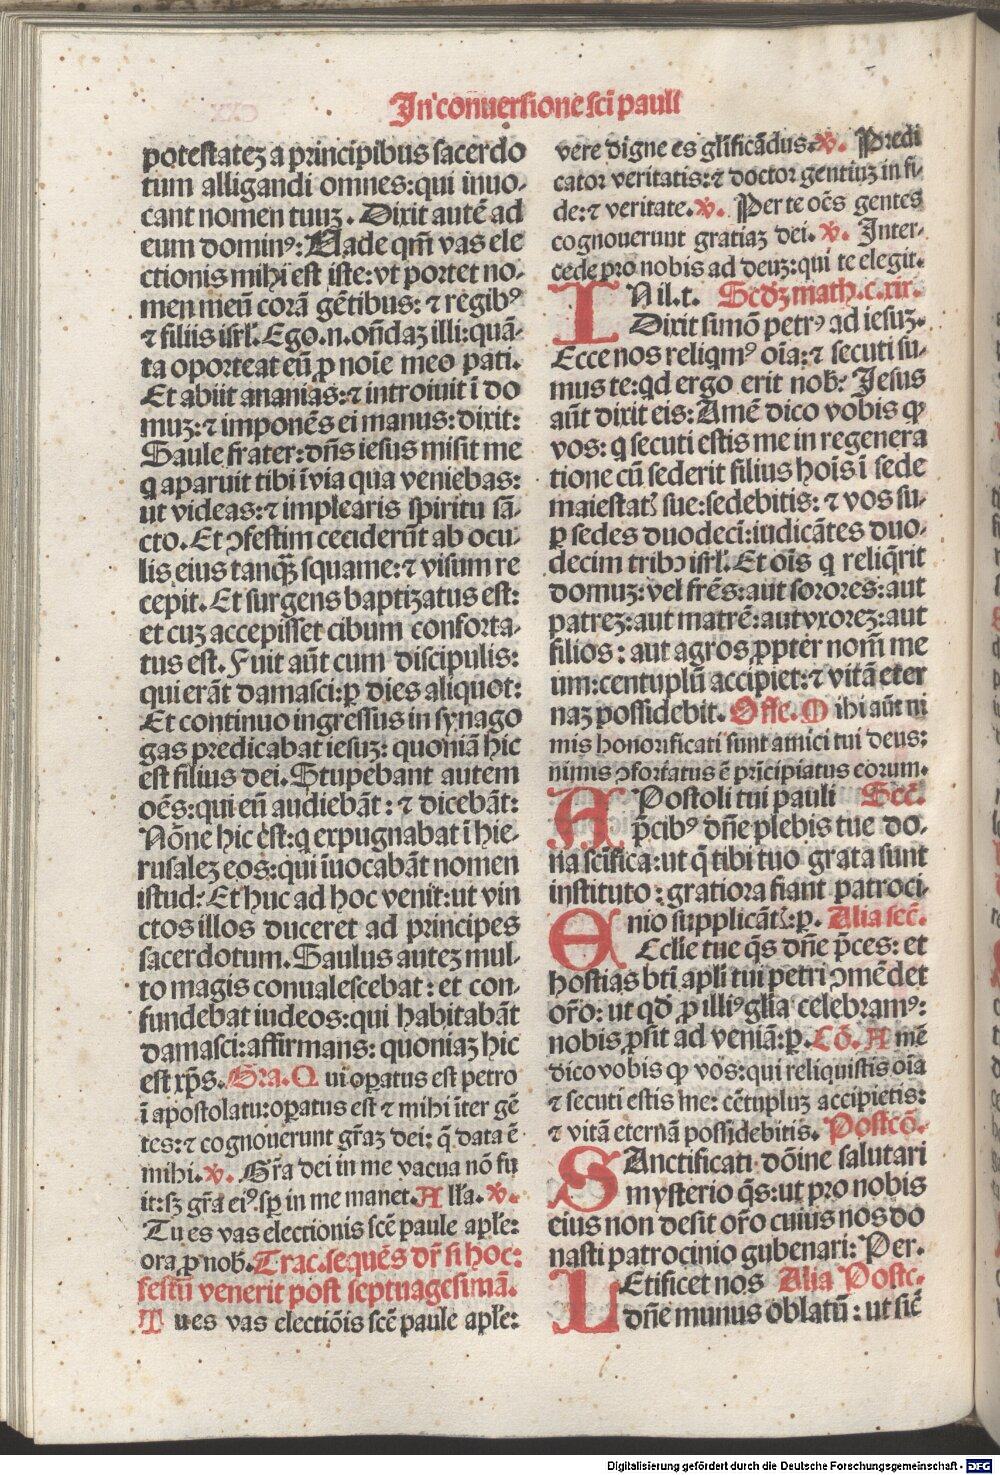 In conuersione scī pauli
potestatez a principibus sacerdo
tum alligandi omnes:qui inuo-
cant nomen tuuz. Dixit autē ad
eum dominꝰ: Uade qm̄ vas ele
ctionis mihi est iste:vt portet no-
men meū corā gētibus: ⁊ regibꝰ
⁊ filiis isrl̓. Ego.n.oñdaz illi:quā-
ta oporteat eū ꝓ noīe meo pati.
Et abiit ananias:⁊ introiuit ī do
muz:⁊ imponēs ei manus:dixit:
Saule frater:dn̄s iesus misit me
q aparuit tibi ī via qua veniebas:
ut videas:⁊ implearis spiritu sā-
cto. Et ꝯfestim ceciderūt ab ocu-
lis eius tanqꝫ squame:⁊ visum re
cepit. Et surgens baptizatus est:
et cuz accepisset cibum conforta-
tus est. Fuit aūt cum discipulis:
qui erāt damasci:ꝑ dies aliquot:
Et continuo ingressus in synago
gas predicabat iesuz: quoniā hic
est filius dei. Stupebant autem
oēs:qui eū audiebāt: ⁊ dicebāt:
Nōne hic est:q expugnabat ī hie-
rusalez eos:qui īuocabāt nomen
istud: Et huc ad hoc venit:ut vin
ctos illos duceret ad principes
sacerdotum. Saulus autez mul-
to magis conualescebat: et con-
fundebat iudeos:qui habitabāt
damasci:affirmans: quoniaz hic
est xp̄s. Gra. Q ui oꝑatus est petro
ī apostolatu:oꝑatus est ⁊ mihi īter gē
tes:⁊ cognouerunt gr̄az dei: q̄ data ē
mihi. ꝟ. Gr̄a dei in me vacua nō fu
it:sꝫ gr̄a eiꝰ sꝑ in me manet. A lľa. ꝟ.
Tu es vas electionis scē paule apl̄e:
ora ꝓ nob̓. Trac. sequēs dr̄ si hoc:
festū venerit post septuagesimā.
T u es vas electiōis scē paule apl̄e:
vere digne es gl̓ificādus. ꝟ. Predi
cator veritatis:⁊ doctor gentiuz in fi-
de:⁊ veritate. ꝟ. Per te oēs gentes
cognouerunt gratiaz dei. ꝟ. Inter-
cede pro nobis ad deuz:qui te elegit.
I N il.t. Scd̓z math.c.xix.
Dixit simō petrꝰ ad iesuz.
Ecce nos reliqmꝰ oīa:⁊ secuti su-
mus te:qd ergo erit nob̓: Jesus
aūt dixit eis: Amē dico vobis ꝙ
vos: q secuti estis me in regenera
tione cū sederit filius hoīs ī sede
maiestatꝭ sue:sedebitis: ⁊ vos su-
ꝑ sedes duodecī:iudicātes duo-
decim tribꝰ isrl̓. Et oīs q reliq̄rit
domuz: vel frēs:aut sorores:aut
patrez:aut matrē:aut vxorez:aut
filios: aut agros ꝓpter nom̄ me
um:centuplū accipiet:⁊ vitā eter
naz possidebit. Offe. M ihi aūt ni
mis honorificati sunt amici tui deus:
nimis ꝯfortatus ē prīcipiatus eorum.
A Postoli tui pauli Secͫ.
p̄cibꝰ dn̄e plebis tue do-
na scīfica:ut q̄ tibi tuo grata sunt
instituto: gratiora fiant patroci-
nio supplicātꝭ:ꝑ. Alia secͫ.
E Cclīe tue q̄s dn̄e p̄ces: et
hostias btī apl̄i tui petri ꝯmēdet
or̄o: ut qd̓ ꝓ illiꝰ gl̄ia celebramꝰ:
nobis ꝓsit ad veniā:ꝑ. Cō. A mē
dico vobis ꝙ vos:qui reliquistis oīa
⁊ secuti estis me: cētupluz accipietis:
⁊ vitā eternā possidebitis. Postcō.
S Anctificati dōine salutari
mysterio q̄s:ut pro nobis
eius non desit or̄o cuius nos do
nasti patrocinio gubenari: Per.
L Etificet nos Alia Postc.
dn̄e munus oblatū: ut sic̄